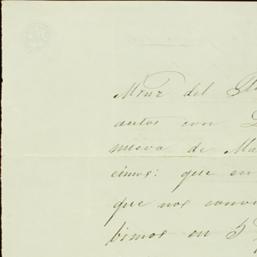 del
autos con
nueva de Ma
cimos: que en
que nos conv
bimos en 5